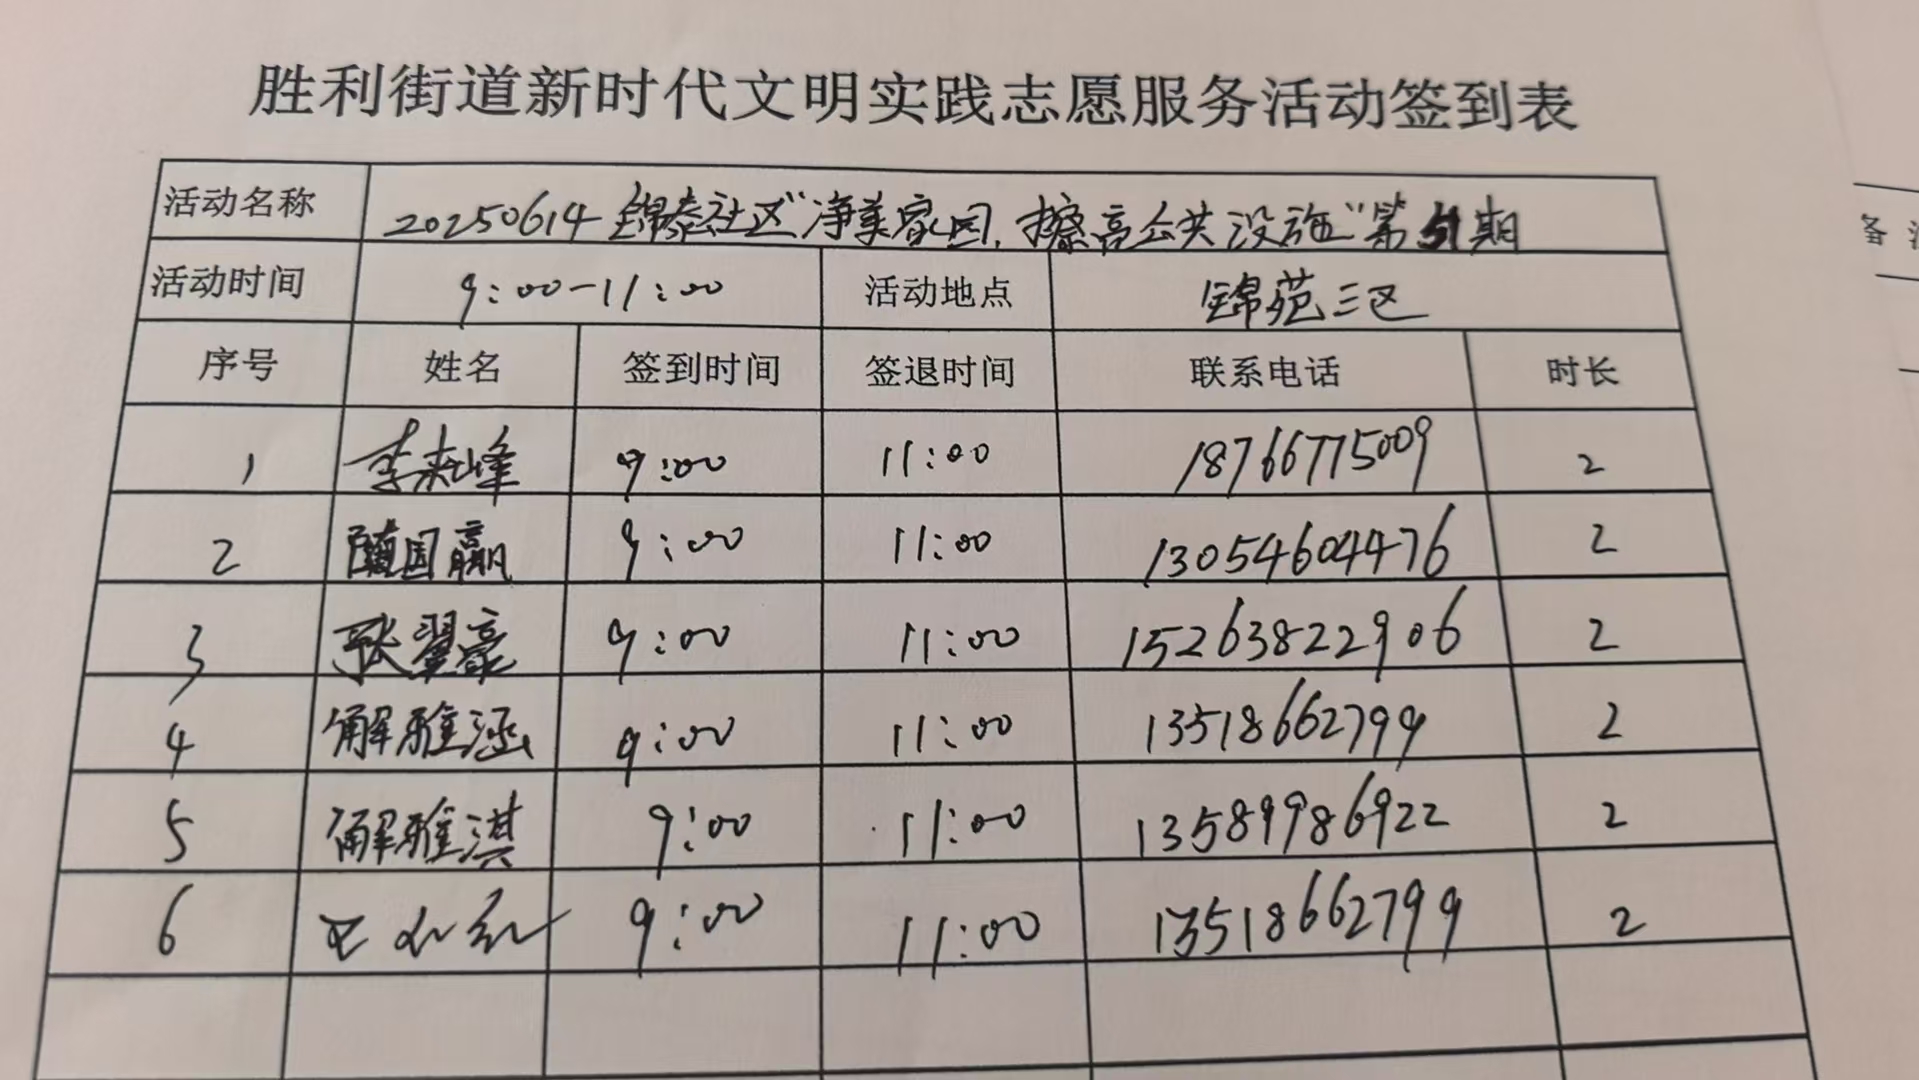 胜利街道新时代文明实践志愿服务活动签到表
活动名称 20250614 锦泰社区"净美家园,擦亮公共设施"第 期
活动时间 9:00-11:00 活动地点 锦苑三区
序号 姓名 签到时间 签退时间 联系电话 时长
1 李来峰 9:00 11:00 18766775009 2
2 随国赢 9:00 11:00 13054604476 2
3 张翼豪 9:00 11:00 15263822906 2
4 解雅涵 9:00 11:00 13518662799 2
5 解雅淇 9:00 11:00 13589986922 2
6 9:00 11:00 13518662799 2
备